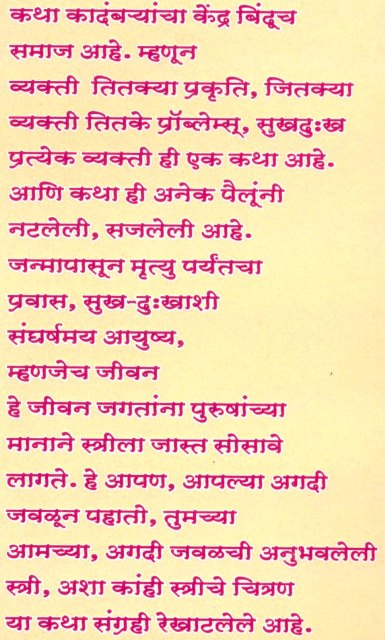 कथा कादंबऱ्यांचा केंद्र बिंदूच
समाज आहे. म्हणून
व्यक्ती तितक्या प्रकृति, जितक्या
व्यक्ती तितके प्रॉब्लेम्स्, सुखदुःख
प्रत्येक व्यक्ती ही एक कथा आहे.
आणि कथा ही अनेक पैलूंनी
नटलेली, सजलेली आहे.
जन्मापासून मृत्यु पर्यंतचा
प्रवास, सुख-दुःखाशी
संघर्षमय आयुष्य,
म्हणजेच जीवन
हे जीवन जगतांना पुरुषांच्या
मानाने स्त्रीला जास्त सोसावे
लागते. हे आपण, आपल्या अगदी
जवळून पहातो, तुमच्या
आमच्या, अगदी जवळची अनुभवलेली
स्त्री, अशा कांही स्त्रीचे चित्रण
या कथा संग्रही रेखाटलेले आहे.